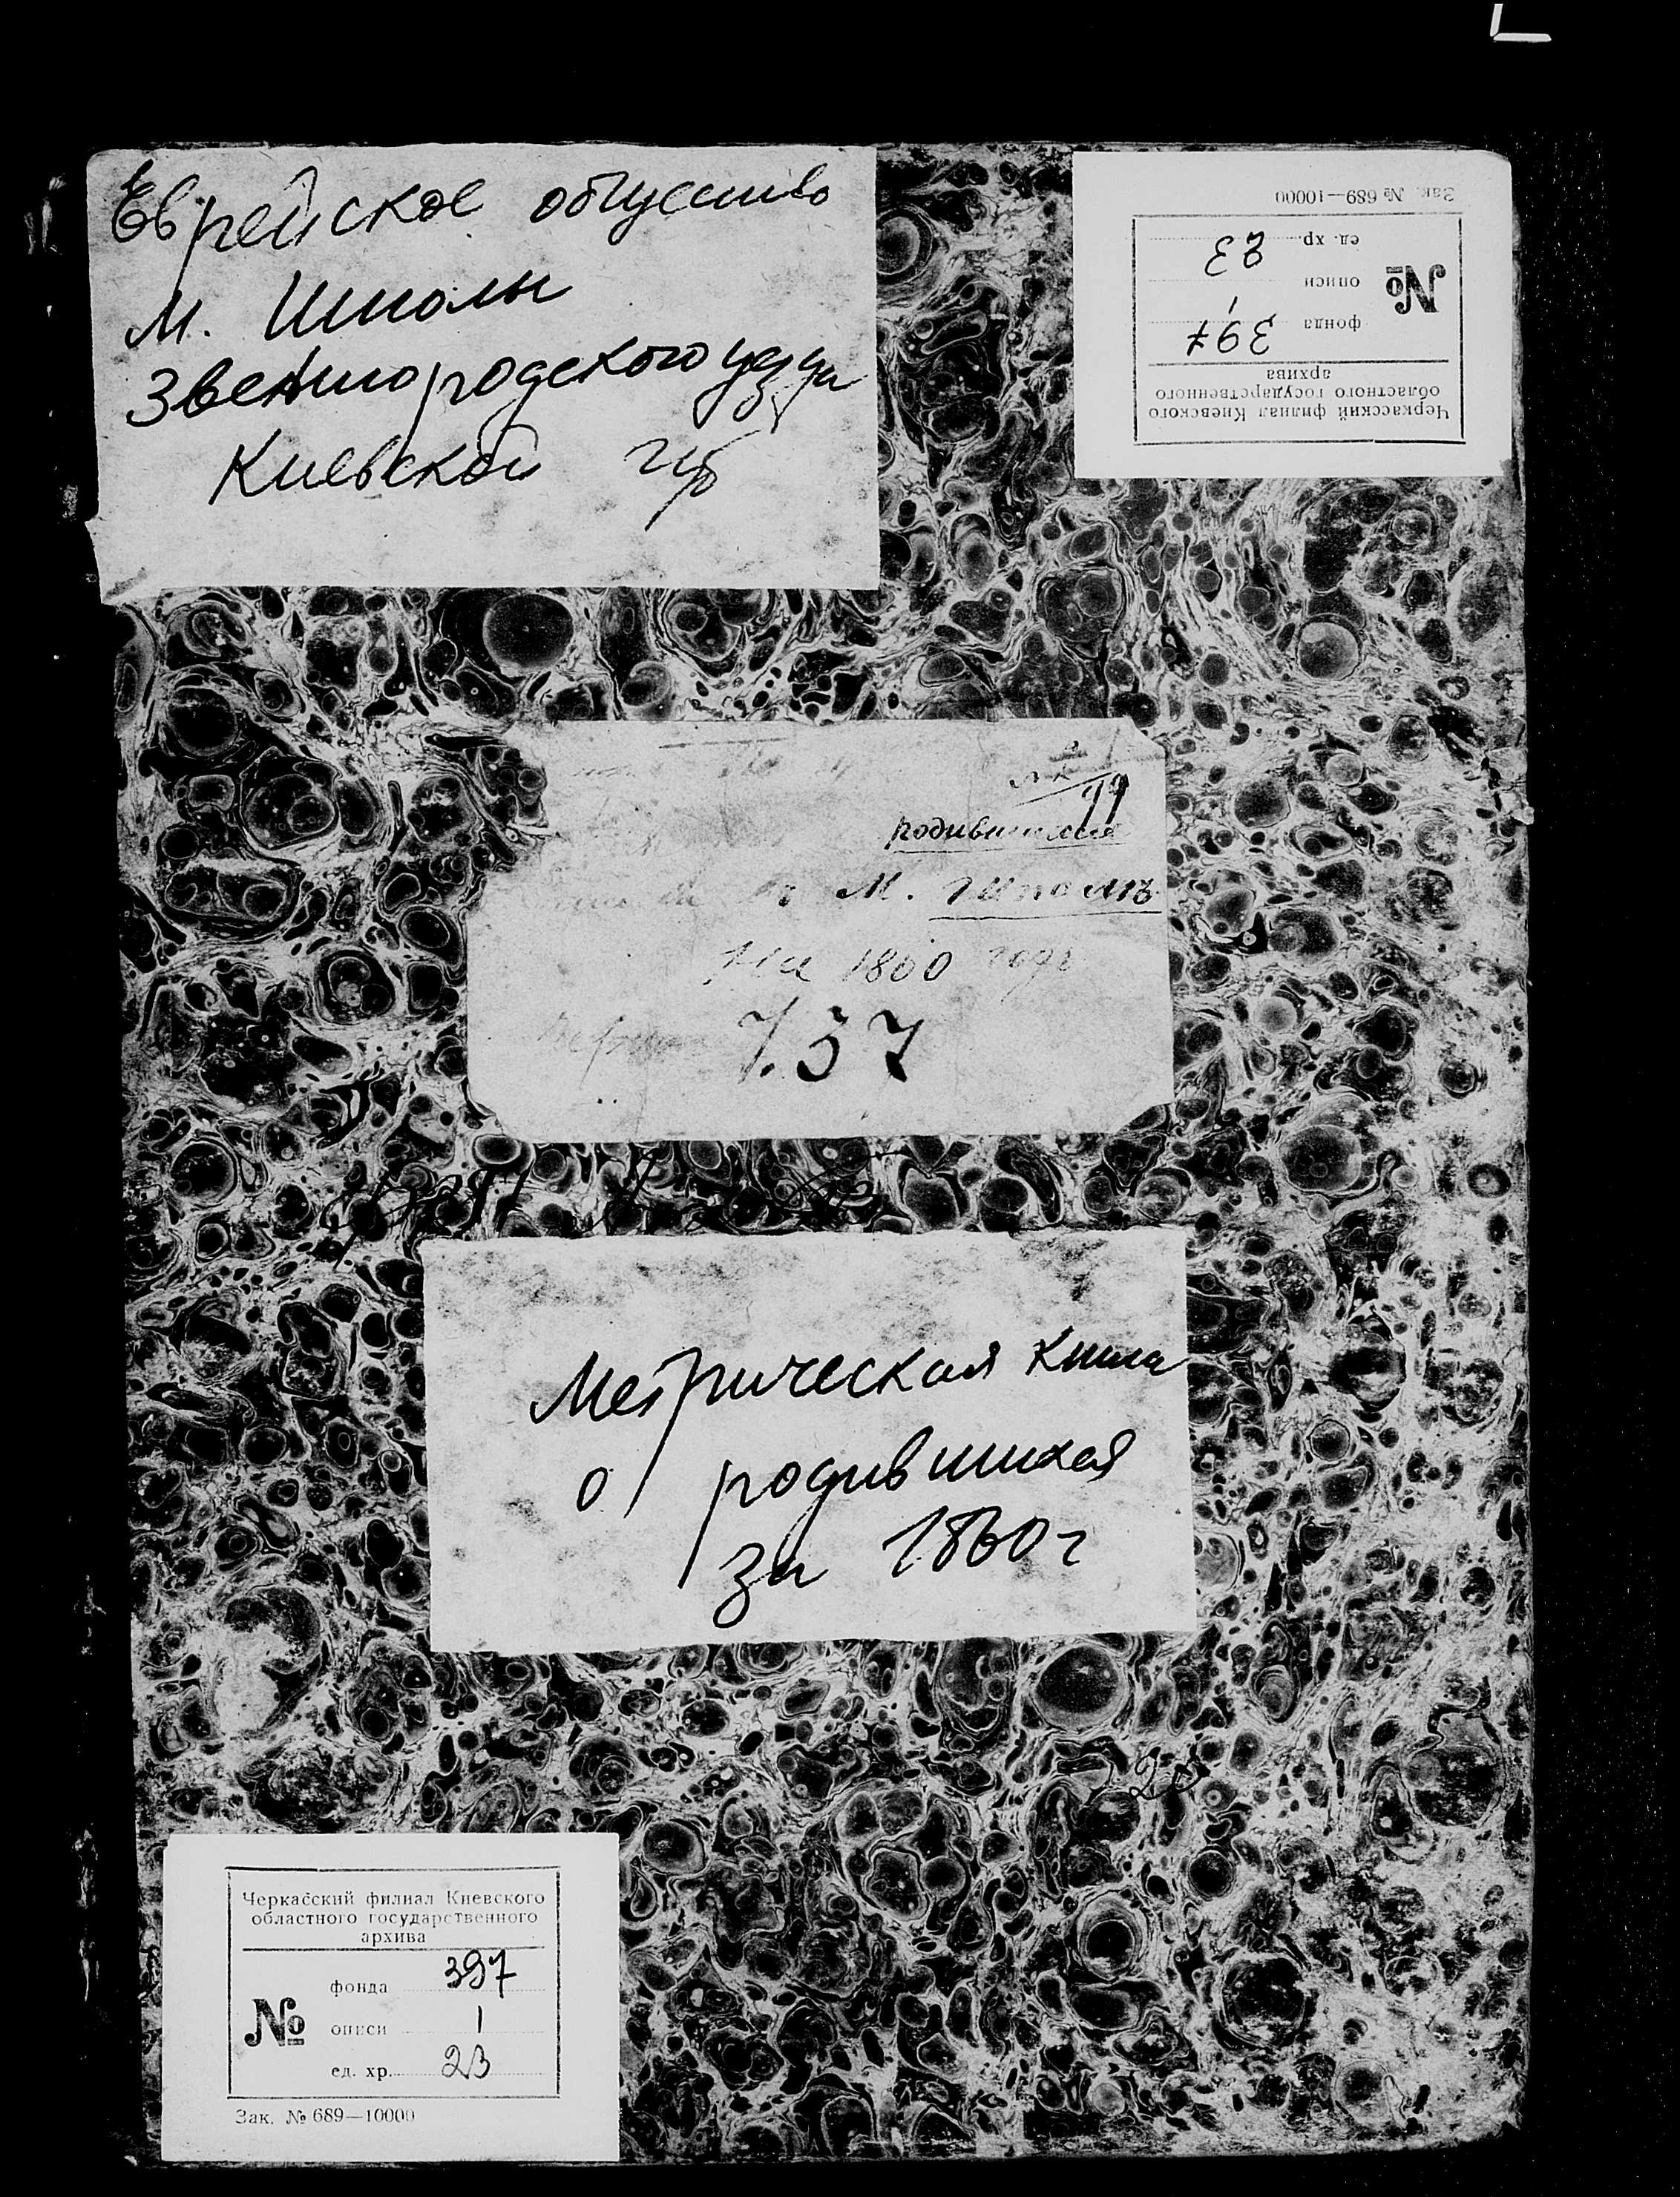 Еврейское общество
м. Шполы
Звенигородского уезда
Киевской губ
Черкасский филиал Киевского
областного государственного
архива
№
фонда 397
описи 1
ед. хр. 23
Зак. № 689—10000
родившихся
М. Шполѣ
На 1860 годъ
737
Метрическая книга
о родившихся
за 1860 г
Черкасский филиал Киевского
областного государственного
архива
№
фонда 397
описи 1
ед. хр. 23
Зак. № 689—10000